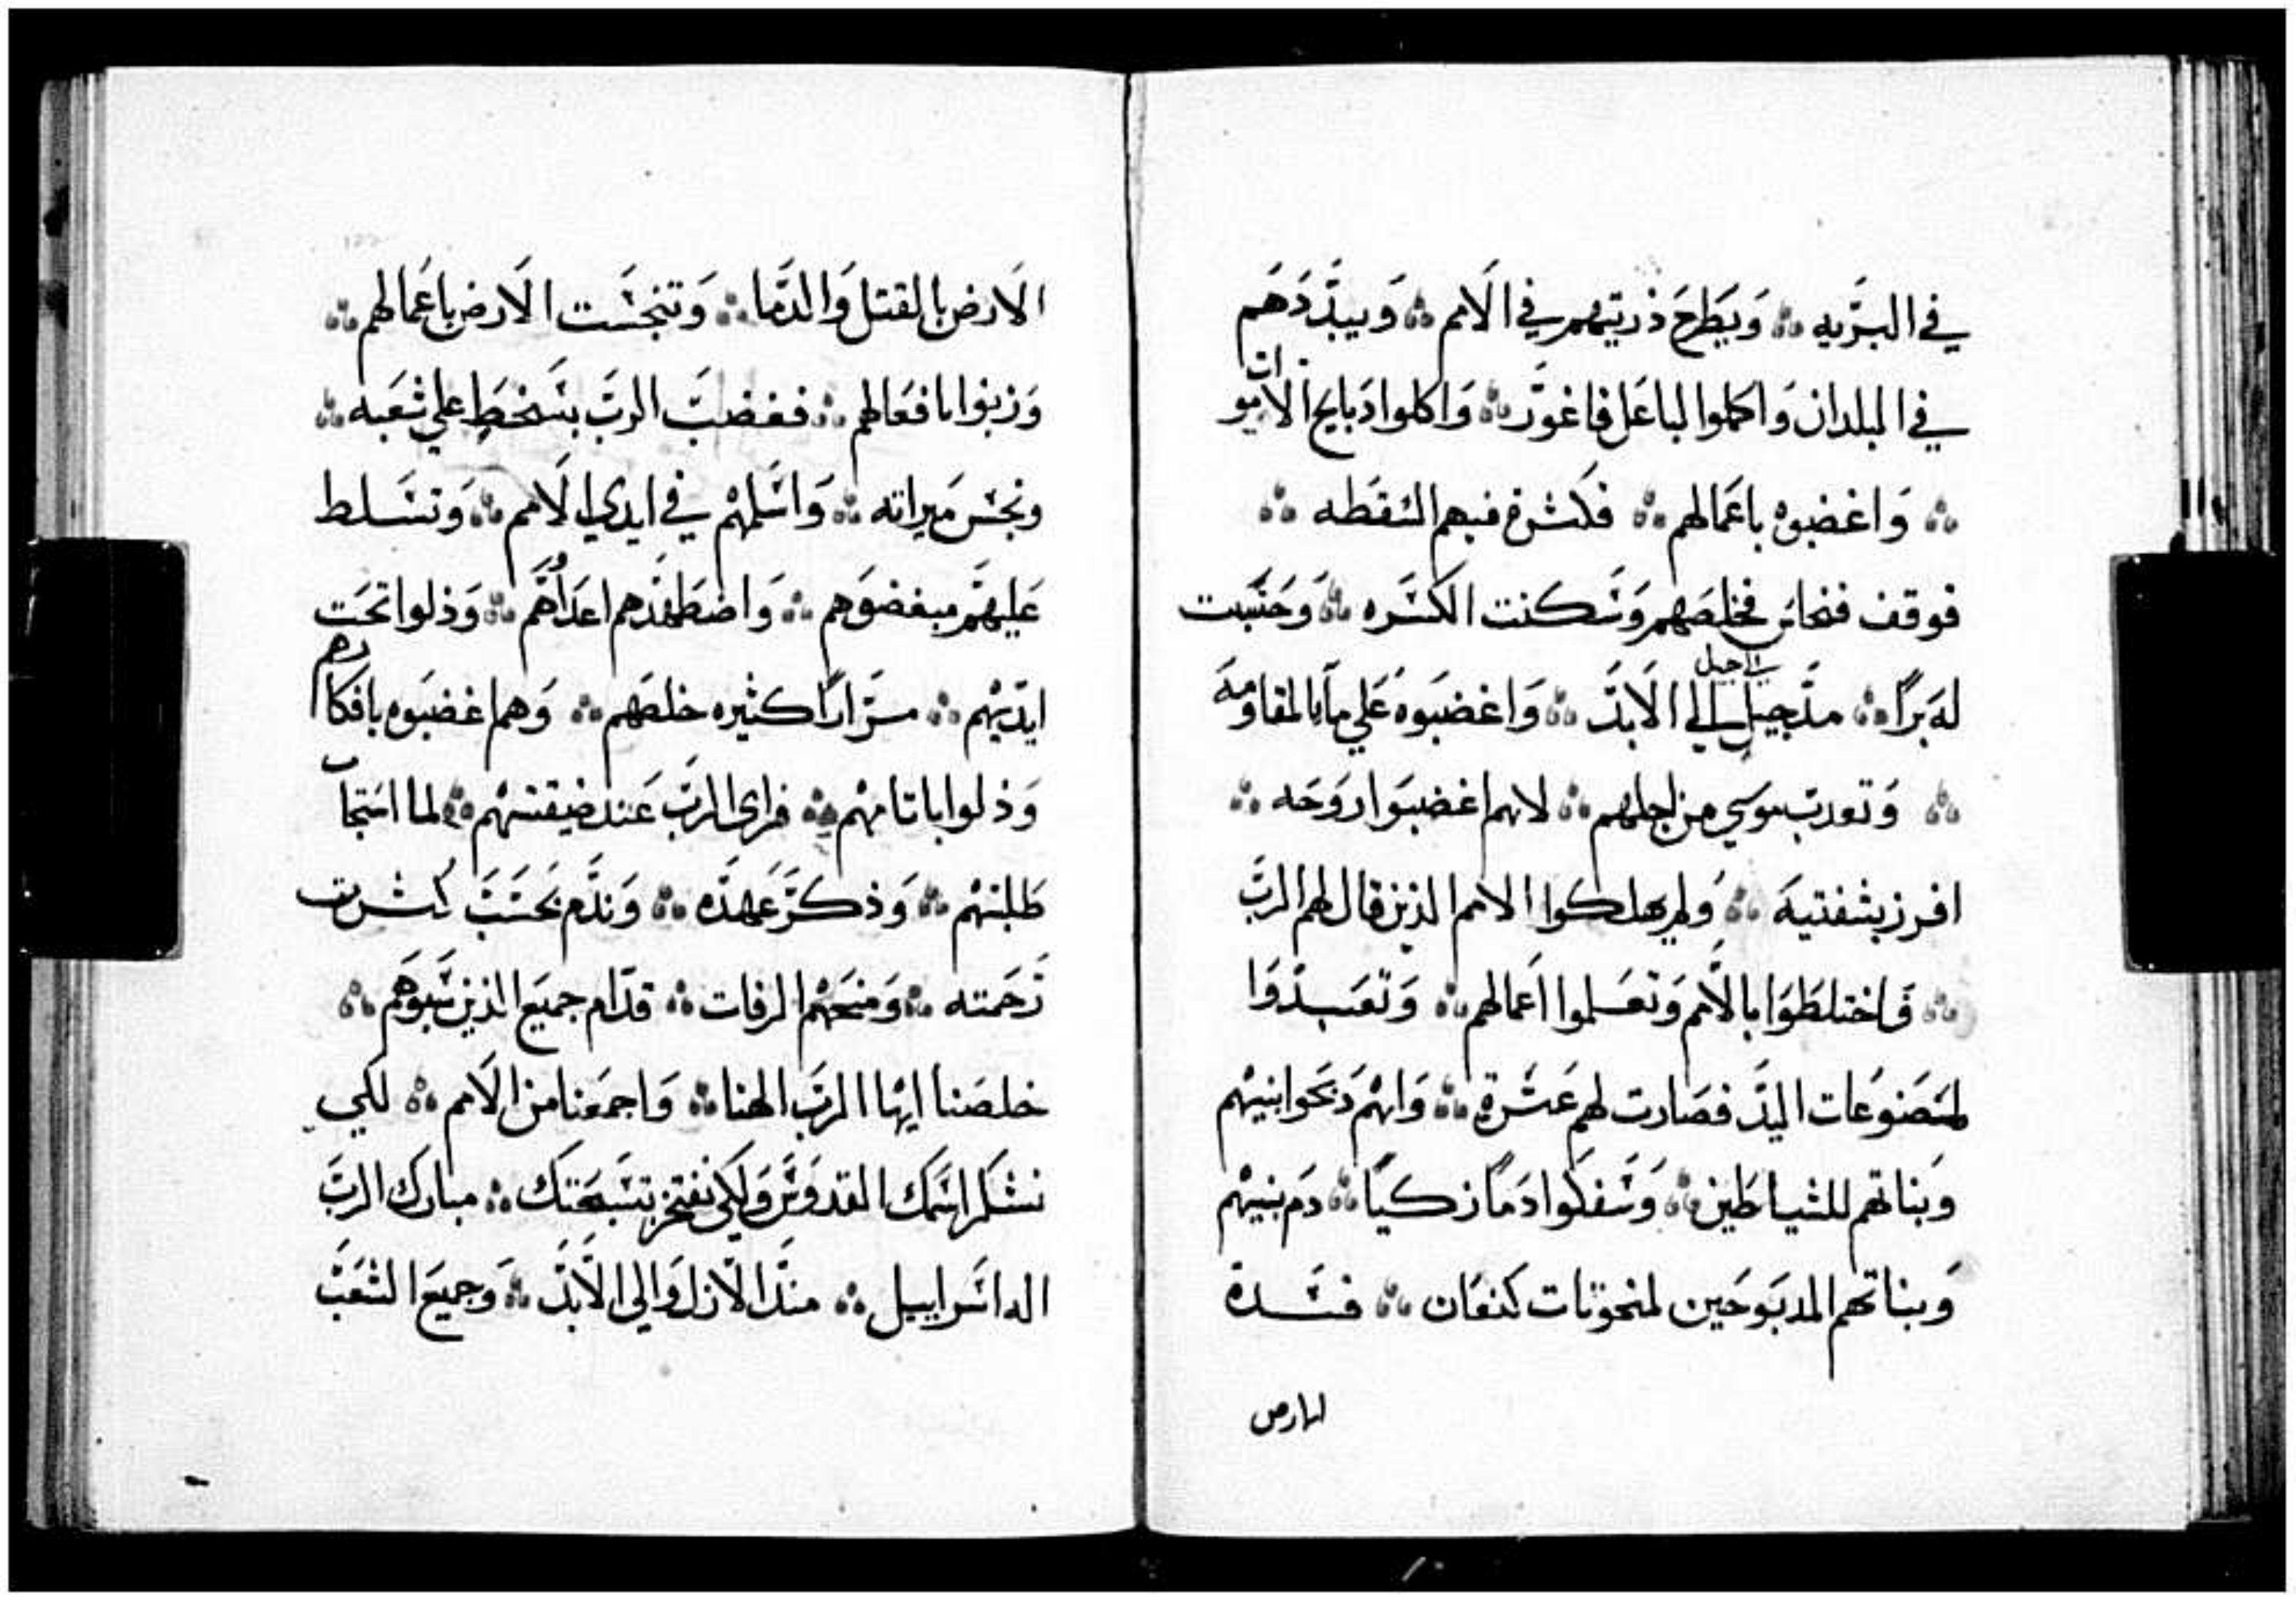 في البَرّيه ⁘ وَيَطرَحَ ذريتهم في الاَمم ⁘ وَيبدّدَهَم
في البلدان وَاكملوا لباعَل فاغوَر ⁘ وَاكلوا دَبايح الاموات
⁘ وَاغضبوه باعَمالهم ⁘ فكثرة فيهم السَقطه ⁘
فوقف فنحاس فخلصَهم وَسَكنت الكسَره ⁘ وَحَسَبت
لهَ برًا ⁘ مدَ جيل الي جيل الي الاَبدَ ⁘ وَاغضَبوهَ عَلي مآ بالمقاومه
⁘ وَتعدبَ موسَي من اجلهم ⁘ لانهم اغضبَوا رَوحَه ⁘
افرز بشفتيهَ ⁘ وَلم يهلكوا الامم الذين قال لهم الربَ
⁘ فاختلطَوَا بالاَمم وَتعَلموا اعَمالهم ⁘ وَتعَبدَوَا
لمصَنوعَات اليدَ فصَارت لهم عَثرَة ⁘ وَانهم دَبحَوا بنيهم
وَبناتهم للشياطَين ⁘ وَسَفكوا دَمًا زكيًا ⁘ دَم بنيهم
وَبناتهم المدبَوحَين لمنحوَتات كنعَان ⁘ ففسَدة
الارض
الاَرض بالقتل وَالدَما ⁘ وَتنجسَت الاَرض باعَمالهم ⁘
وَزنوا بافعَالهم ⁘ فغضبَ الربَ بسَخطَ علي شعَبه ⁘
ونجسَ ميراته ⁘ وَاسَلمهم في ايدي الاَمم ⁘ وَتسَلط
عَليهم مبغضوَهم ⁘ وَاضطَهَدهم اعدَاَهم ⁘ وَذلوا تحَت
ايدَيهم ⁘ مرَارًا كثيره خلصَهم ⁘ وَهم اغضبَوه بافكارهم
وَذلوا باتامهم ⁘ فراي الربَ عَند ضيقتهم ⁘ لما استجاب
طَلبتهم ⁘ وَذكرَ عَهدَه ⁘ وَندَم بحَسَبَ كثرت
رَحمَته ⁘ وَمنحَهم الرفات ⁘ قدَام جميعَ الذين سَبوَهم ⁘
خلصَنا ايها الربَ الهنا ⁘ وَاجمعَنا من الاَمم ⁘ لكي
نشكر اسَمك القدوسَ وَلكي نفتخر بتسَبحَتك ⁘ مبارك الربَ
اله اسَراييل ⁘ مندَ الاَزل وَالي الاَبدَ ⁘ وَجميعَ الشعَبَ